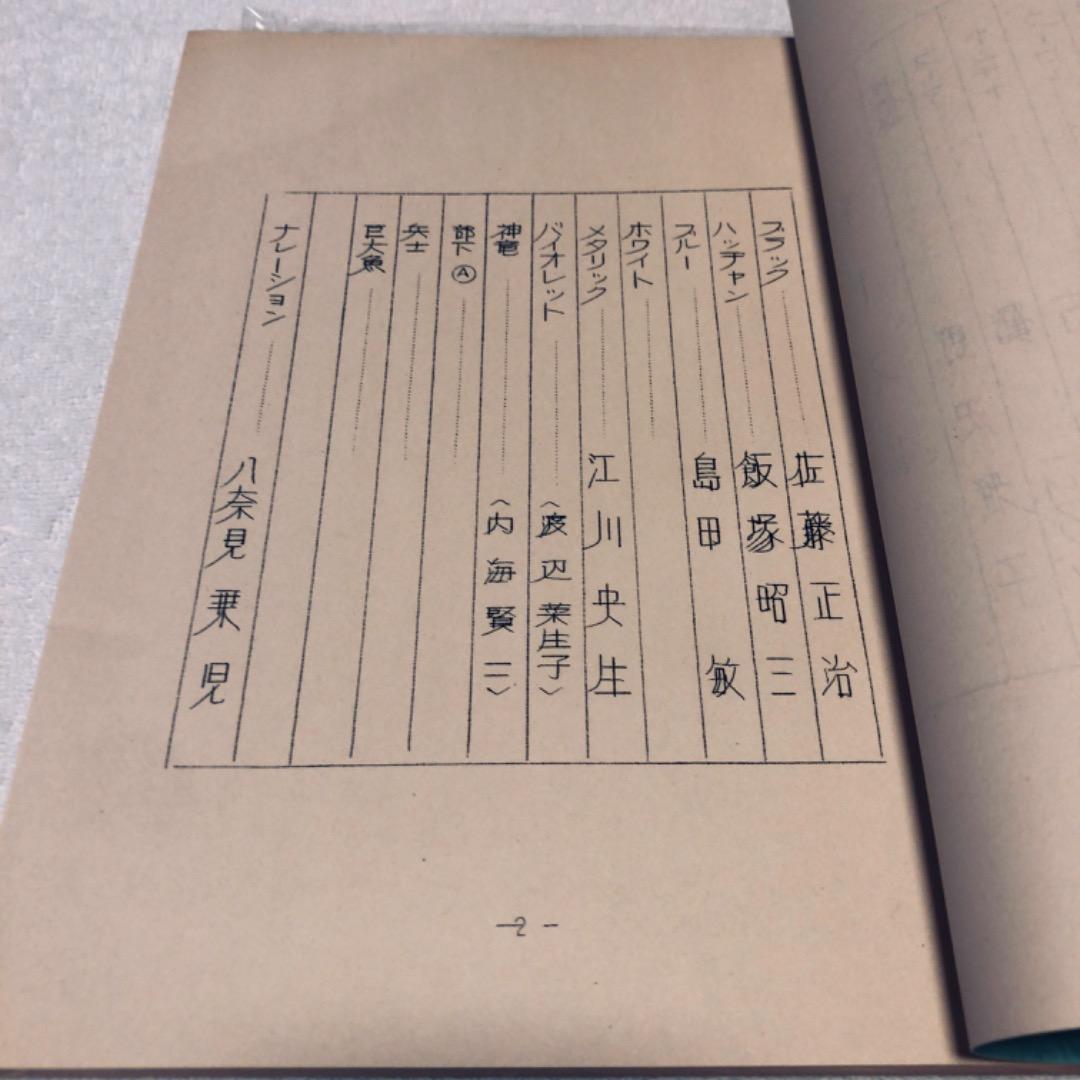 ブラック 佐藤正治
ハッチャン 飯塚昭三
ブルー 島田敏
ホワイト
メタリック 江川央生
バイオレット 〈渡辺菜生子〉
神竜 〈内海賢二〉
部下Ⓐ
兵士
巨大魚
ナレーション 八奈見乗児
－2－